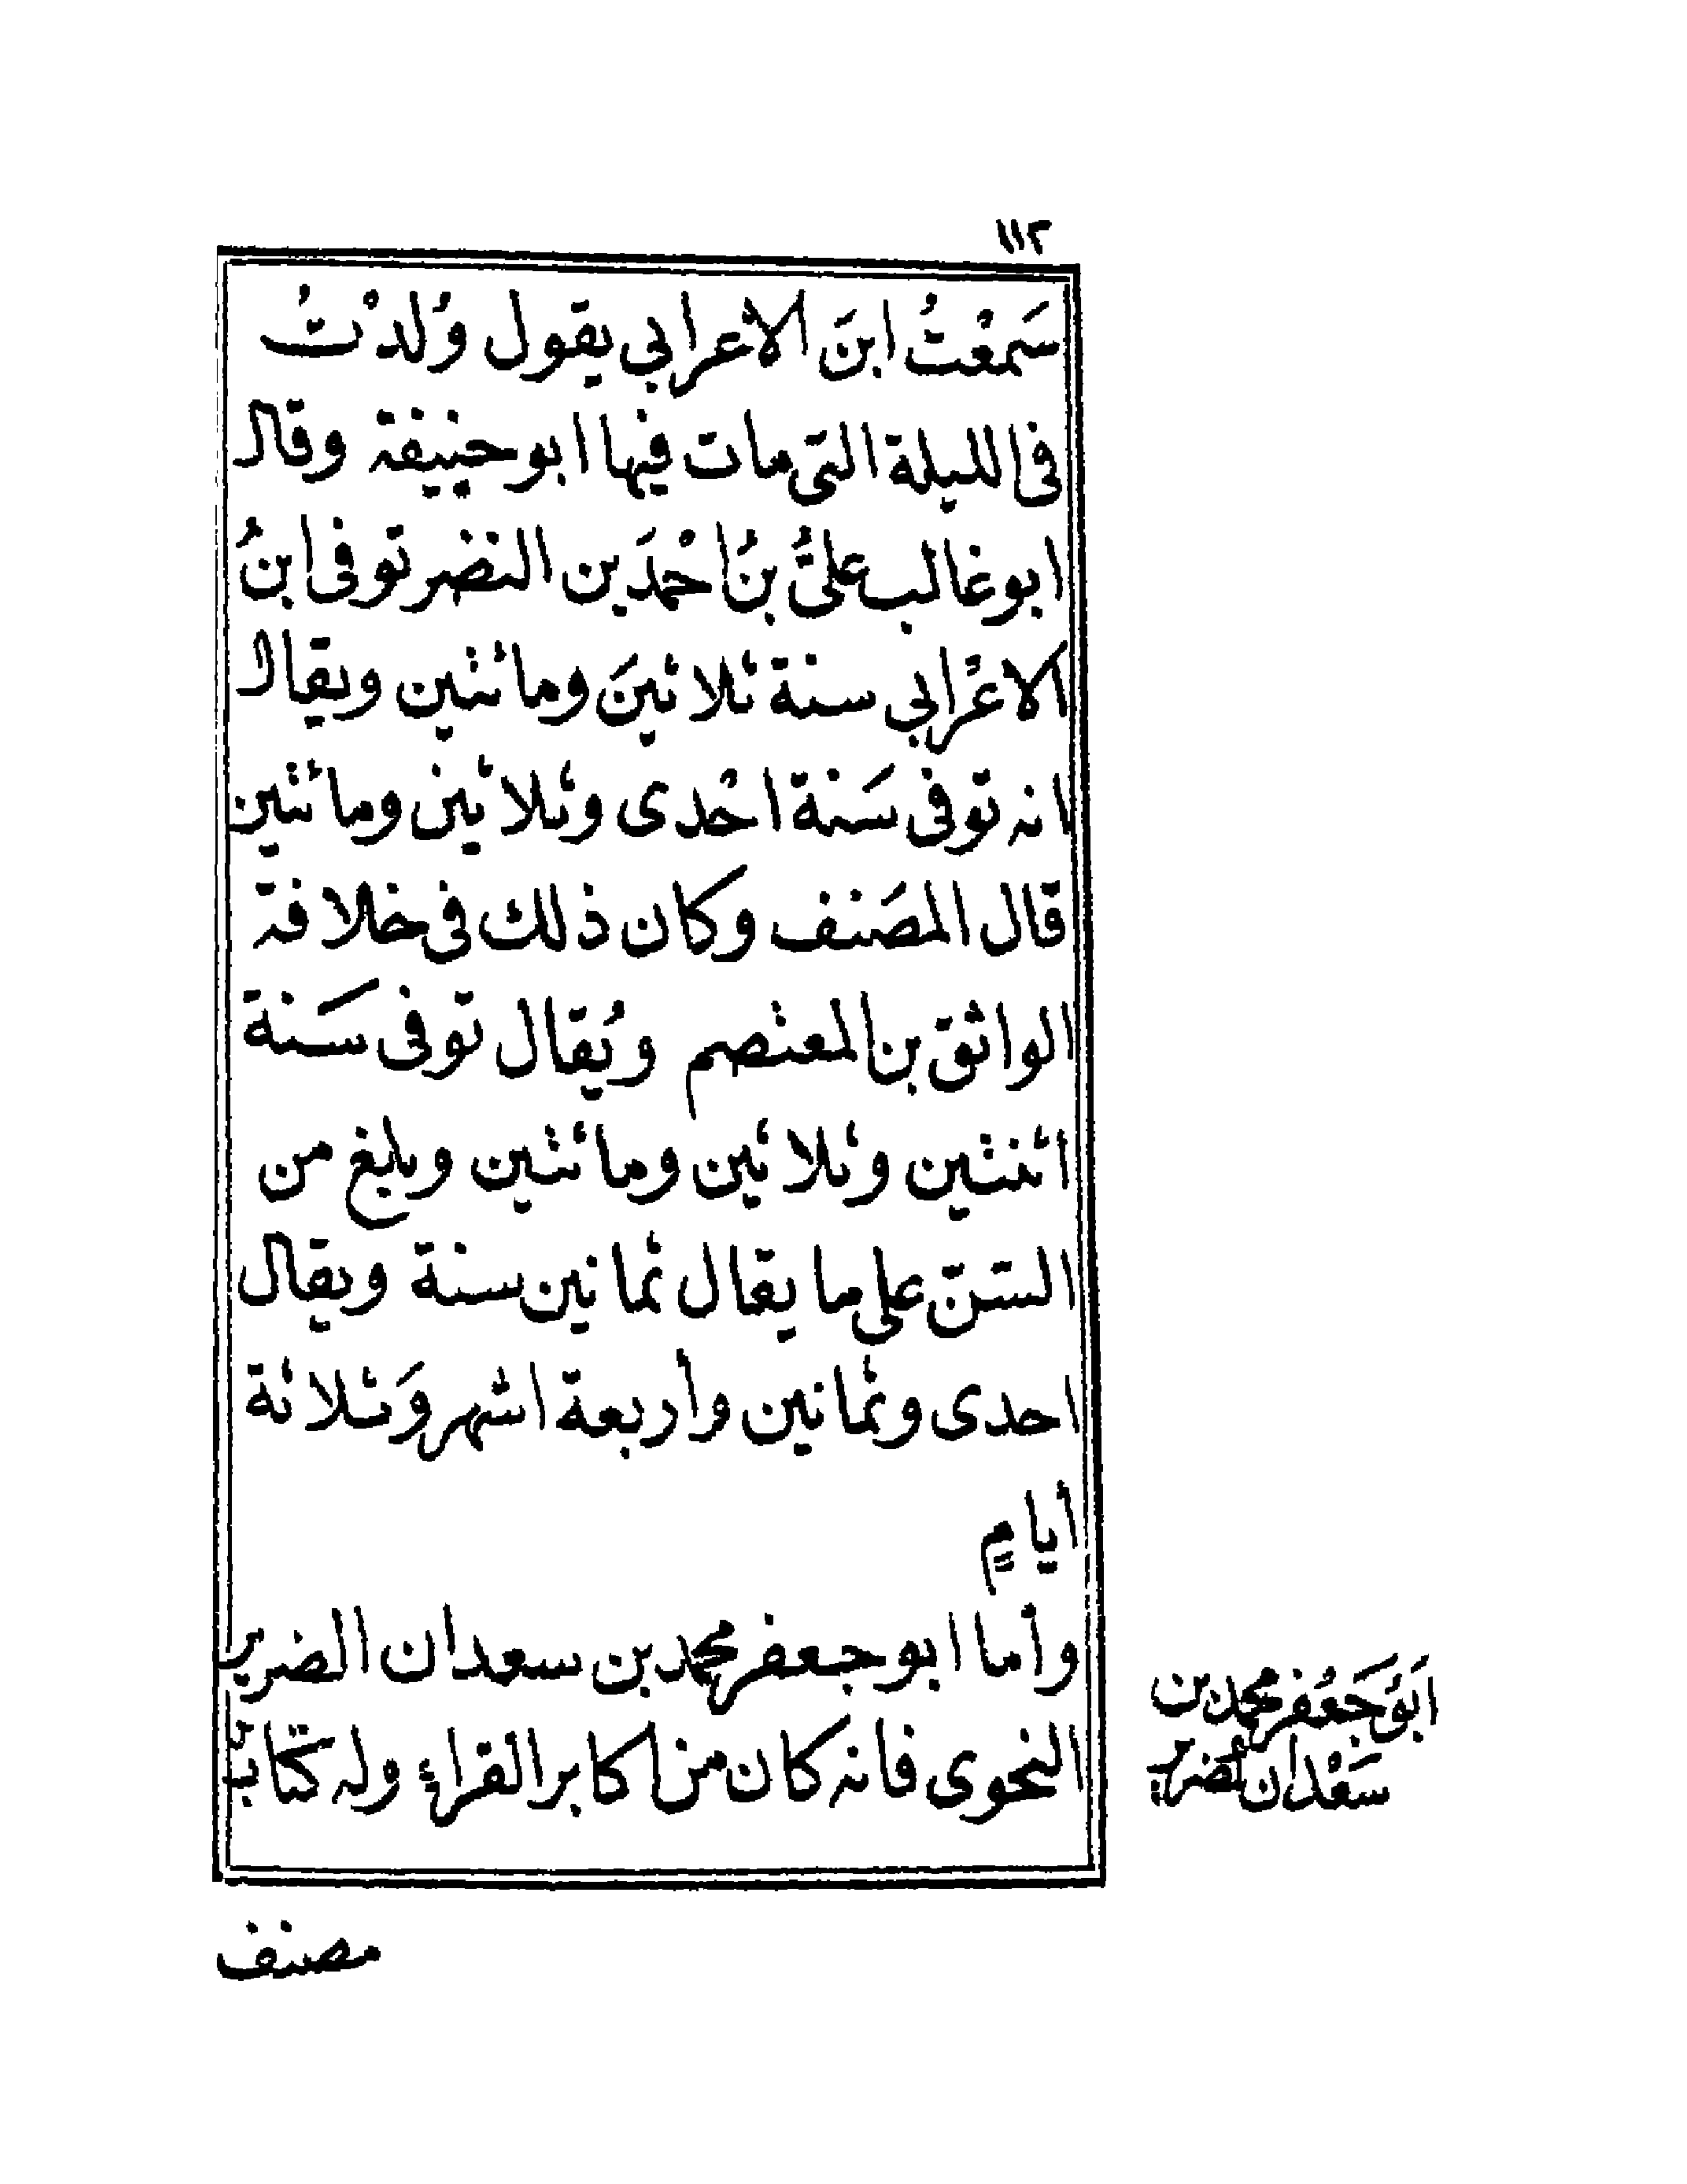 ١١٢
سَمعْتُ ابنَ الاعرابي يقول وُلدْتُ
فى الليلة التى مات فيها ابو حنيفة وقال
ابو غالب علىُّ بنُ احْمدَ بن النضر توفى ابنُ
الاعْرابي سنة ثلاثينَ ومائتين ويقال
انه توفى سَنة احْدى وثلاثين ومائتين
قال المصَنف وكان ذلك فى خلافة
الواثق بن المعتصم ويُقال توفى سَنة
اثنتين وثلاثين ومائتين وبلغ من
السّنّ على ما يقال ثمانين سنة ويقال
احدى وثمانين وأربعة اشهر وَثلاثة
أيامٍ
وأما ابو جعفر محمد بن سعدان الضرير
النحوى فانه كان من اكابر القراءِ وله كتابٌ
ابَوُ جَعْفر محمد بن
سَعْدان الضرير
مصنف